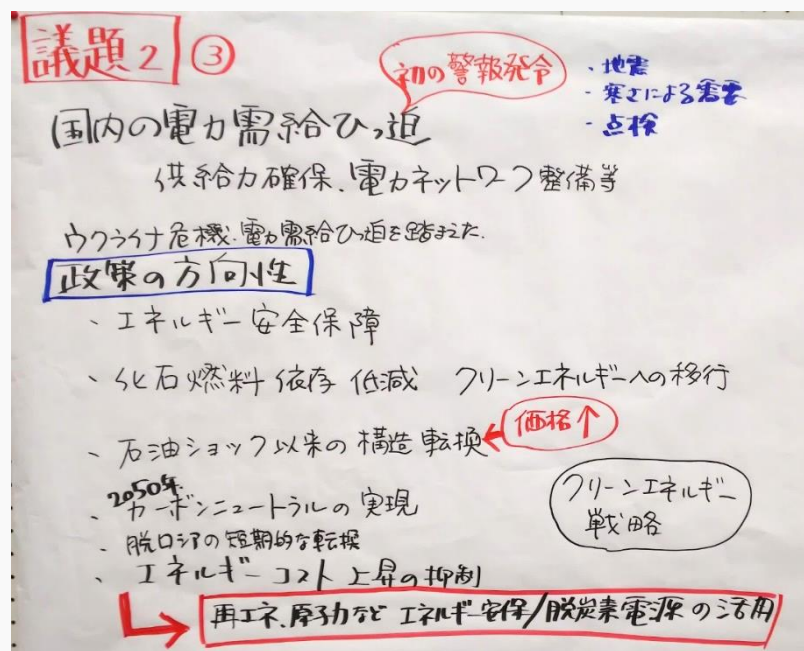 議題2 ③
初の警報発令
・地震
・寒さによる需要
・点検
国内の電力需給ひっ迫
供給力確保、電力ネットワーク整備等
ウクライナ危機、電力需給ひっ迫を踏まえた
政策の方向性
・エネルギー安全保障
・化石燃料依存低減 クリーンエネルギーへの移行
・石油ショック以来の構造転換 ← 価格↑
・2050年カーボンニュートラルの実現
クリーンエネルギー
戦略
・脱ロシアの短期的な転換
・エネルギーコスト上昇の抑制
再エネ、原子力など エネルギー安保/脱炭素電源の活用